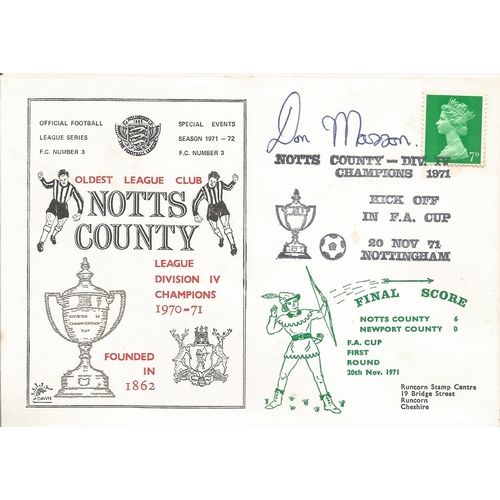 OFFICIAL FOOTBALL
LEAGUE SERIES
F.C. NUMBER 3
SPECIAL EVENTS
SEASON 1971 - 72
F.C. NUMBER 3
OLDEST LEAGUE CLUB
NOTTS
COUNTY
LEAGUE
DIVISION IV
CHAMPIONS
1970-71
DIVISION IV
CHAMPIONSHIP
CUP
FOUNDED
IN
1862
J.DAWN
Don Masson.
7P
NOTTS COUNTY - DIV. IV
CHAMPIONS 1971
KICK OFF
IN F.A. CUP
20 NOV 71
NOTTINGHAM
FINAL SCORE
NOTTS COUNTY 6
NEWPORT COUNTY 0
F.A. CUP
FIRST
ROUND
20th Nov. 1971
Runcorn Stamp Centre
19 Bridge Street
Runcorn
Cheshire